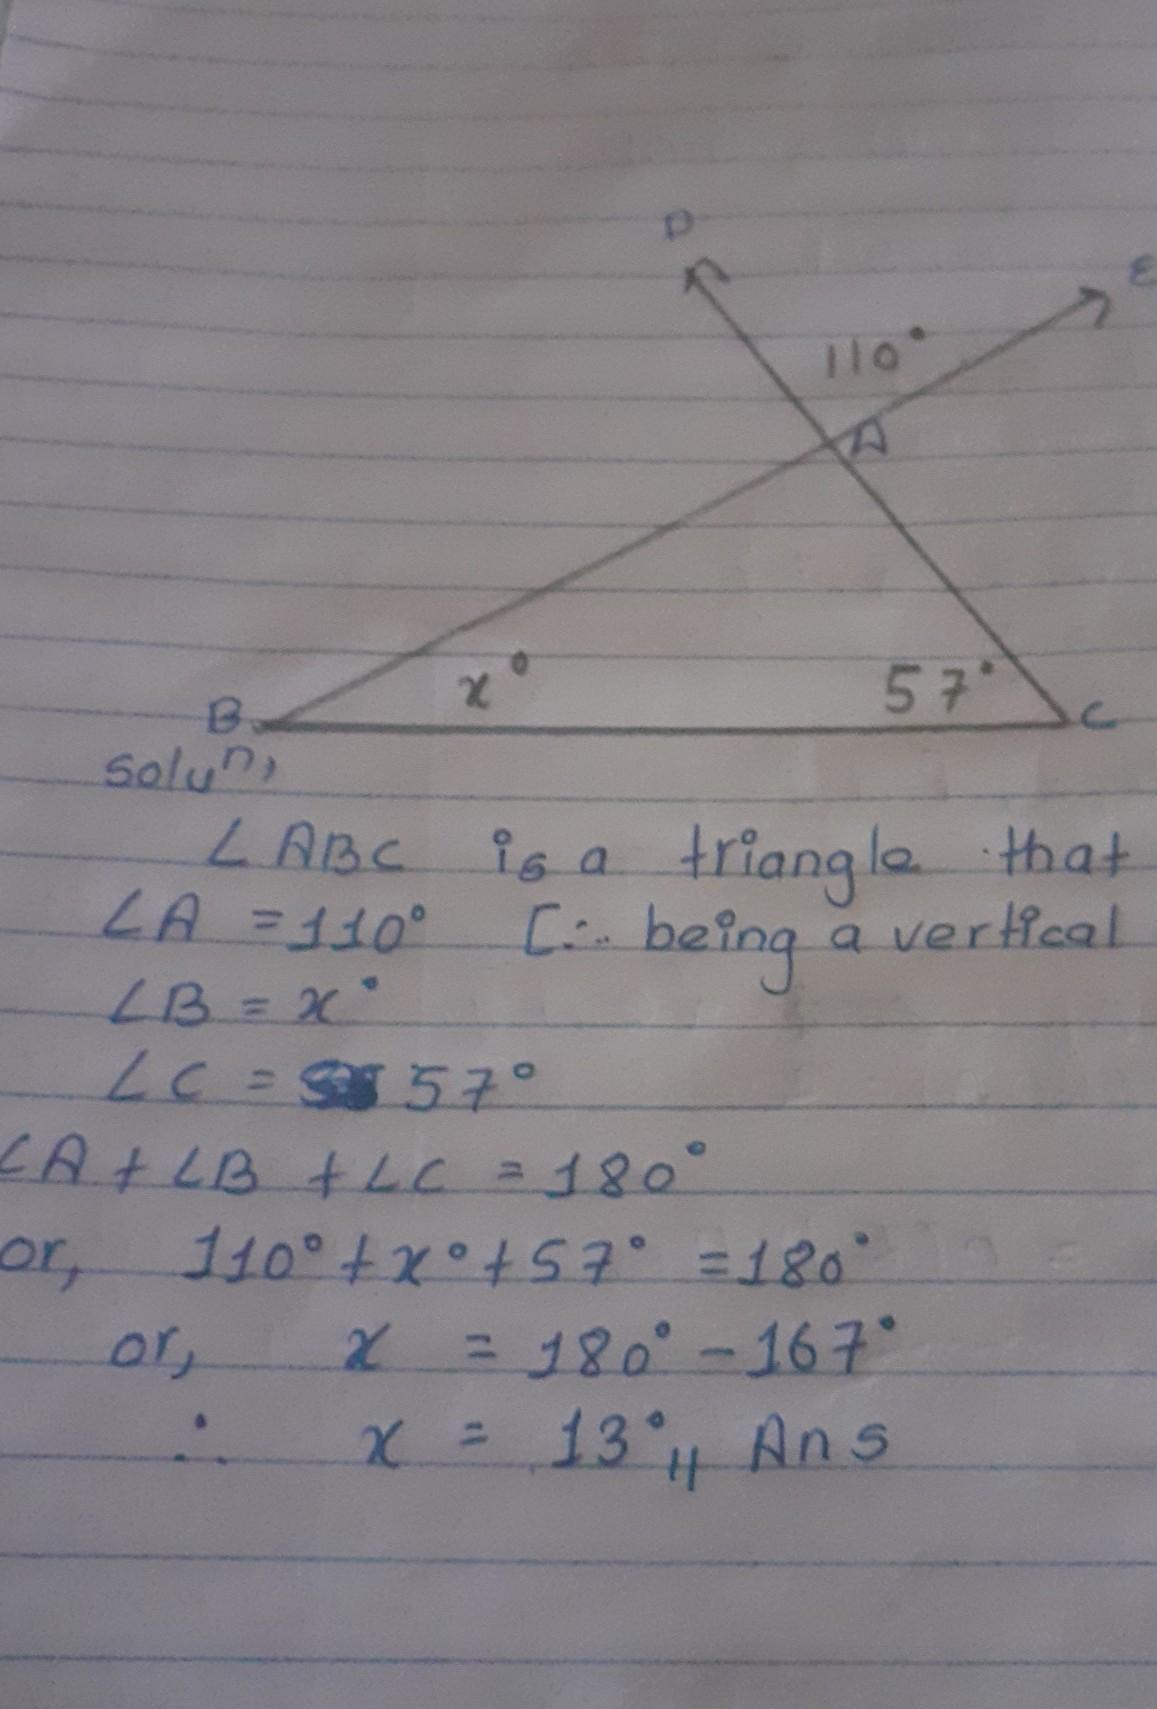 D
E
110°
A
x°
57°
B
C
soluⁿ,
∠ABC is a triangle that
∠A = 110° [∴ being a vertical
∠B = x°
∠C = 57°
∠A + ∠B + ∠C = 180°
or, 110° + x° + 57° = 180°
or, x = 180° - 167°
∴ x = 13°,, Ans